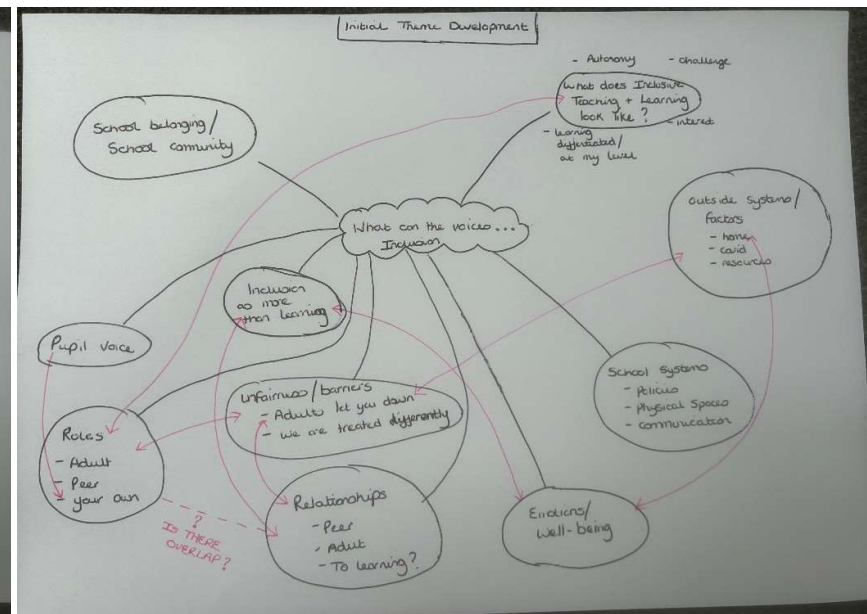 Initial Theme Development
- Autonomy
- challenge
What does Inclusive
Teaching + Learning
look like?
- interest
- learning
differentiated/
at my level
School belonging/
School comunity
Outside systems/
factors
- home
- covid
- resources
What can the voices...
Inclusion
Inclusion
as more
than learning
Pupil voice
Unfairness/barriers
- Adults let you down
- We are treated differently
School Systems
- Policies
- Physical Spaces
- communication
Roles
- Adult
- Peer
- your own
?
IS THERE
OVERLAP?
Relationships
- Peer
- Adult
- To learning?
Emotions/
Well-being